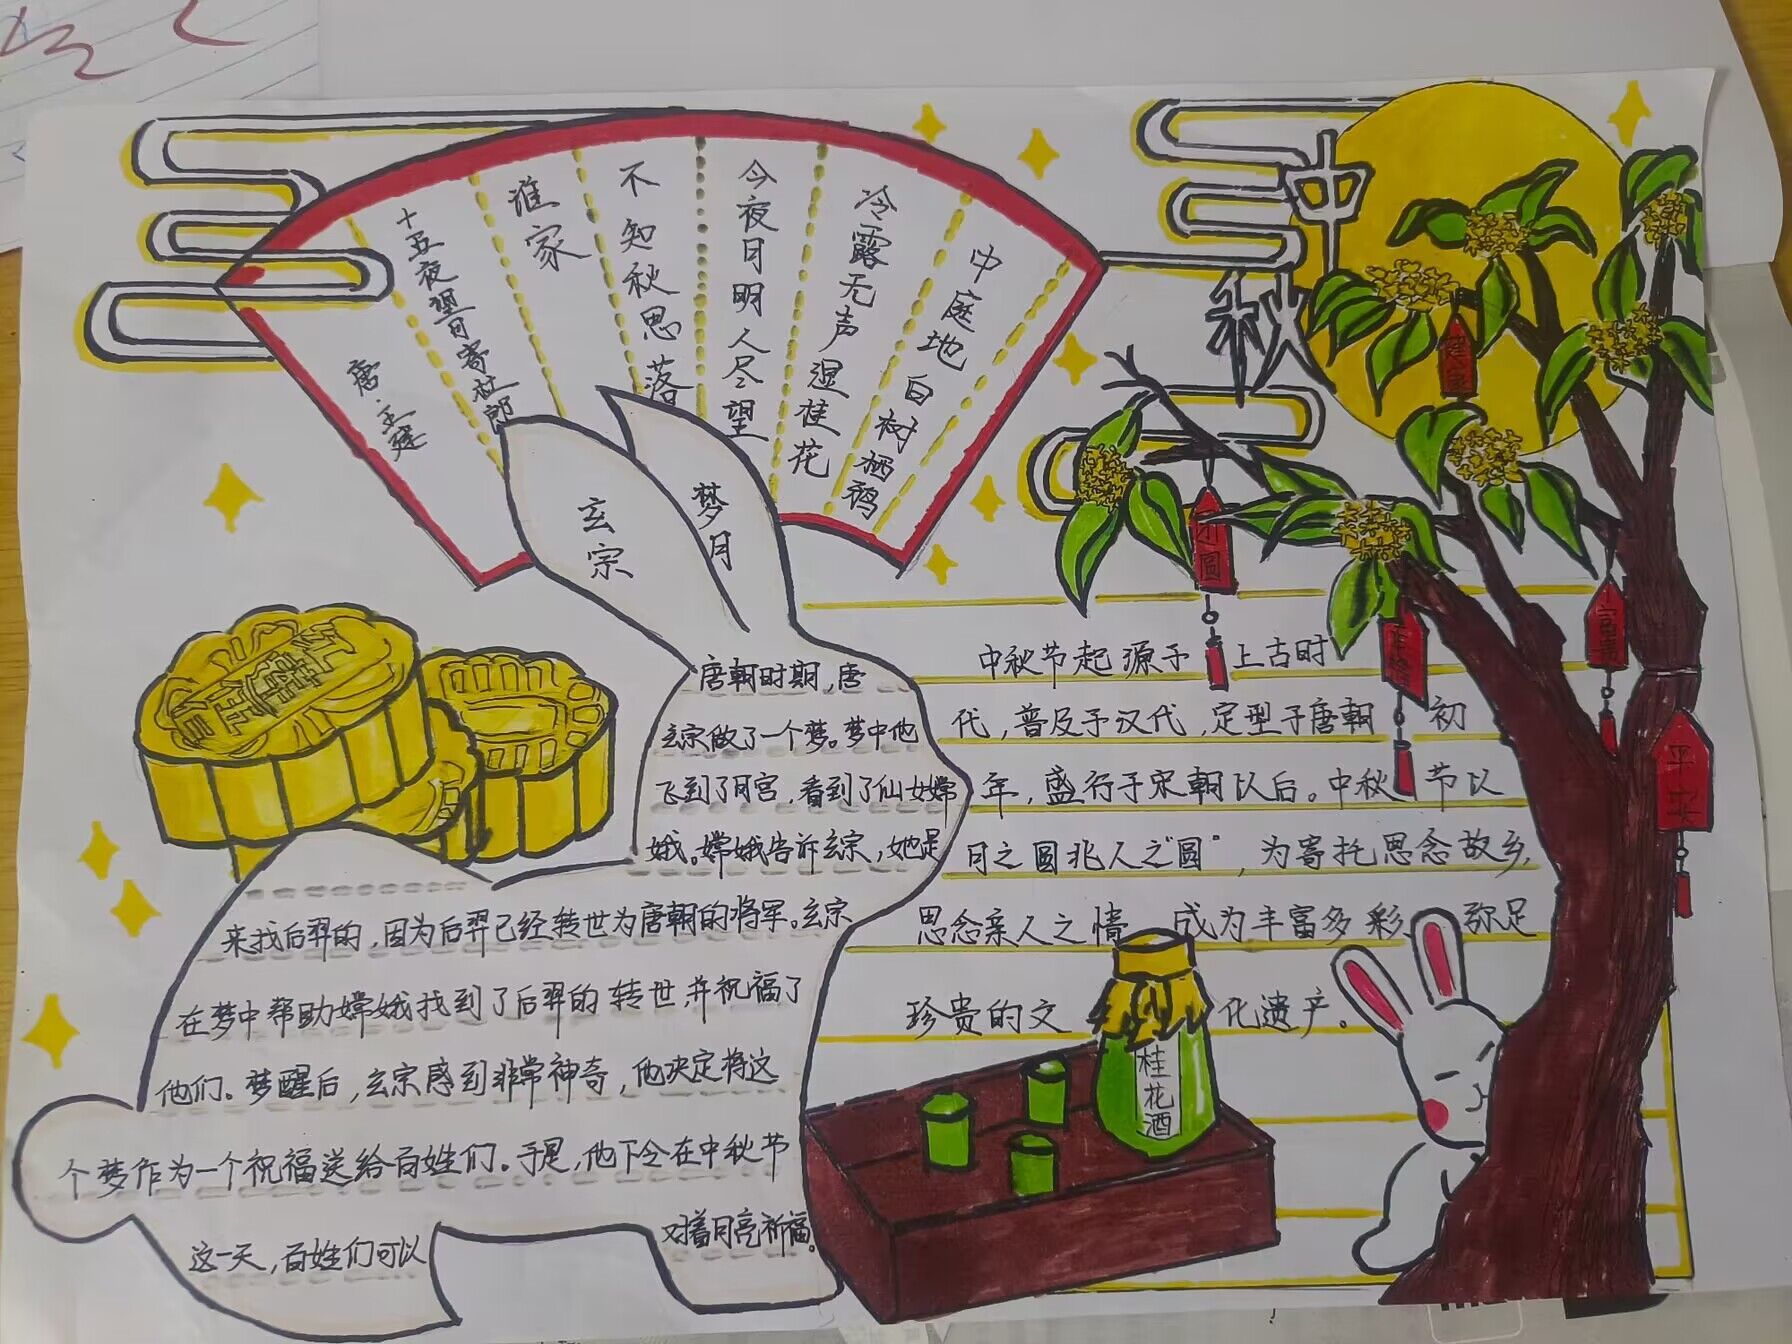 中秋
中庭地白树栖鸦
冷露无声湿桂花
今夜月明人尽望
不知秋思落
谁家
十五夜望月寄杜郎
唐·王建
玄宗
梦月
唐朝时期，唐
玄宗做了一个梦。梦中他
飞到了月宫，看到了仙女嫦
娥。嫦娥告诉玄宗，她是
来找后羿的，因为后羿已经转世为唐朝的将军。玄宗
在梦中帮助嫦娥找到了后羿的转世，并祝福了
他们。梦醒后，玄宗感到非常神奇，他决定将这
个梦作为一个祝福送给百姓们。于是，他下令在中秋节
这一天，百姓们可以
对着月亮祈福。
中秋节起源于上古时
代，普及于汉代，定型于唐朝初
年，盛行于宋朝以后。中秋节以
月之圆兆人之“圆”，为寄托思念故乡，
思念亲人之情，成为丰富多彩、弥足
珍贵的文化遗产。
桂花酒
平安